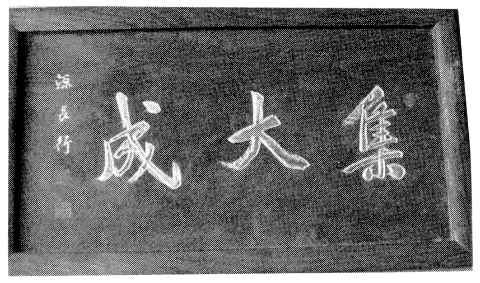 集大成
源長行